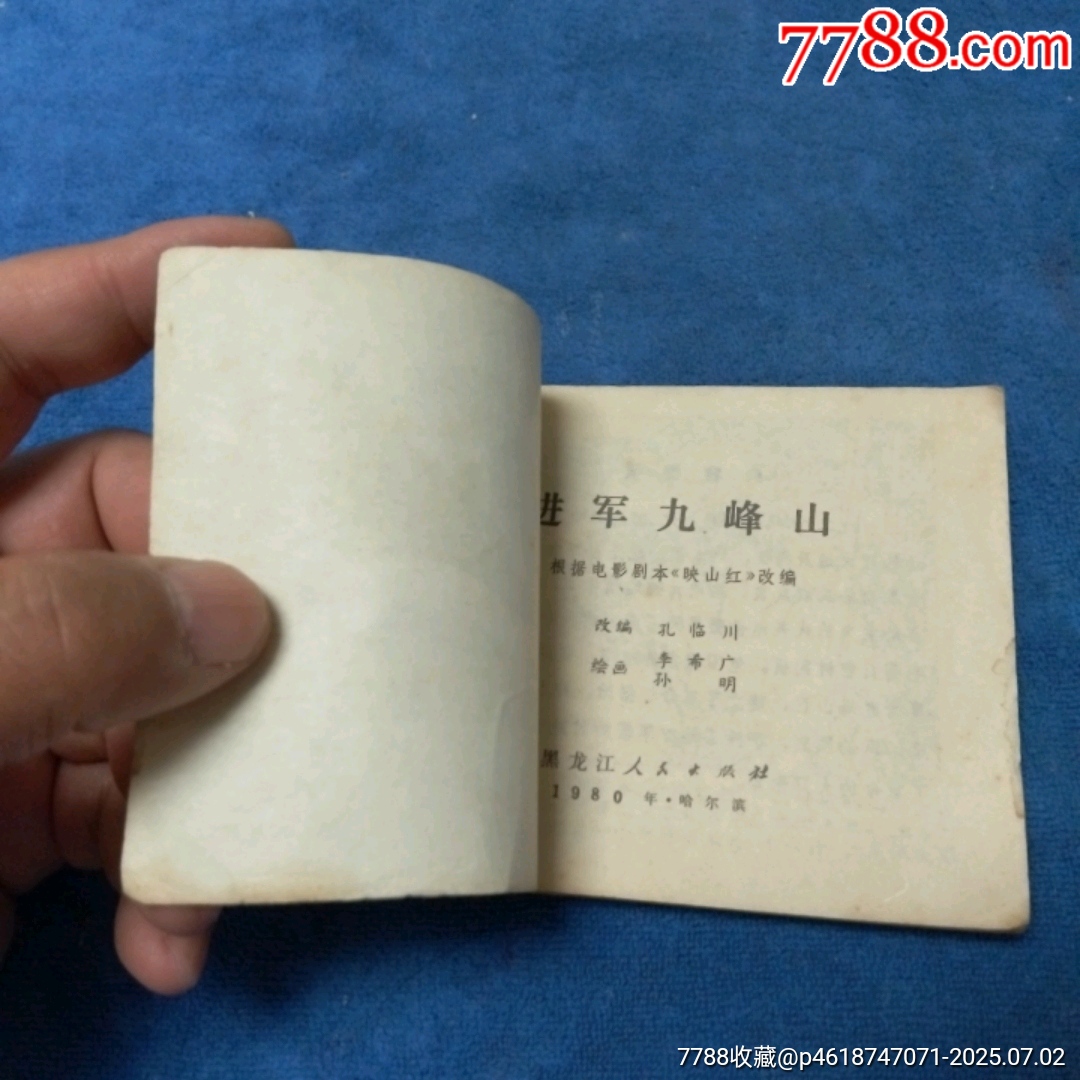 7788.com
进军九峰山
根据电影剧本《映山红》改编
改编 孔临川
绘画 李希广
孙明
黑龙江人民出版社
1980年·哈尔滨
7788收藏@p4618747071-2025.07.02